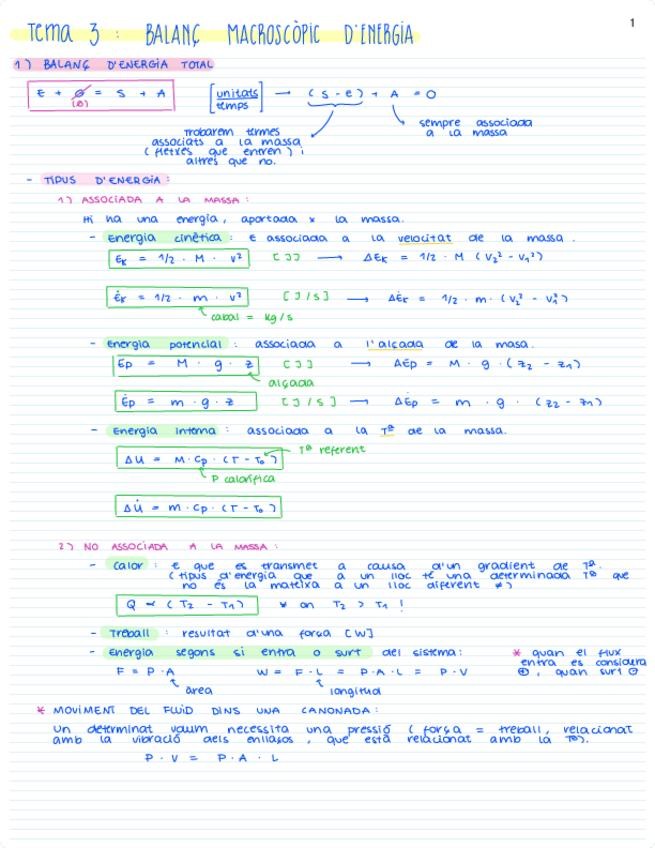 1
Tema 3 : BALANÇ MACROSCÒPIC D'ENERGIA
1) BALANÇ D'ENERGIA TOTAL
E + G = S + A
(0)
[unitats/temps] → (S - E) + A = 0
sempre associada
a la massa
trobarem termes
associats a la massa
(fletxes que entren) i
altres que no.
- TIPUS D'ENERGIA:
1) ASSOCIADA A LA MASSA:
Hi ha una energia, aportada x la massa.
- Energia cinètica: E associada a la velocitat de la massa.
Ek = 1/2 · M · v² [J] → ΔEk = 1/2 · M (v₂² - v₁²)
Ėk = 1/2 · m · v² [J/s] → ΔĖk = 1/2 · m · (v₂² - v₁²)
cabal = kg/s
- Energia potencial: associada a l'alçada de la masa.
Ep = M · g · z [J] → ΔEp = M · g · (z₂ - z₁)
alçada
Ėp = m · g · z [J/s] → ΔĖp = m · g · (z₂ - z₁)
- Energia interna: associada a la Tª de la massa.
Tª referent
ΔU = M · Cp · (T - T₀)
P calorífica
ΔU̇ = m · Cp · (T - T₀)
2) NO ASSOCIADA A LA MASSA:
- Calor: E que es transmet a causa d'un gradient de Tª.
(tipus d'energia que a un lloc té una determinada Tª que
no és la mateixa a un lloc diferent ≠)
Q ∝ (T₂ - T₁) * on T₂ > T₁ !
- Treball: resultat d'una força [W]
- Energia segons si entra o surt del sistema:
* quan el flux
entra es considera
⊕, quan surt ⊖
F = P · A W = F · L = P · A · L = P · V
àrea longitud
* MOVIMENT DEL FLUID DINS UNA CANONADA:
Un determinat volum necessita una pressió (força = treball, relacionat
amb la vibració dels enllaços, que està relacionat amb la Tª).
P · V = P · A · L